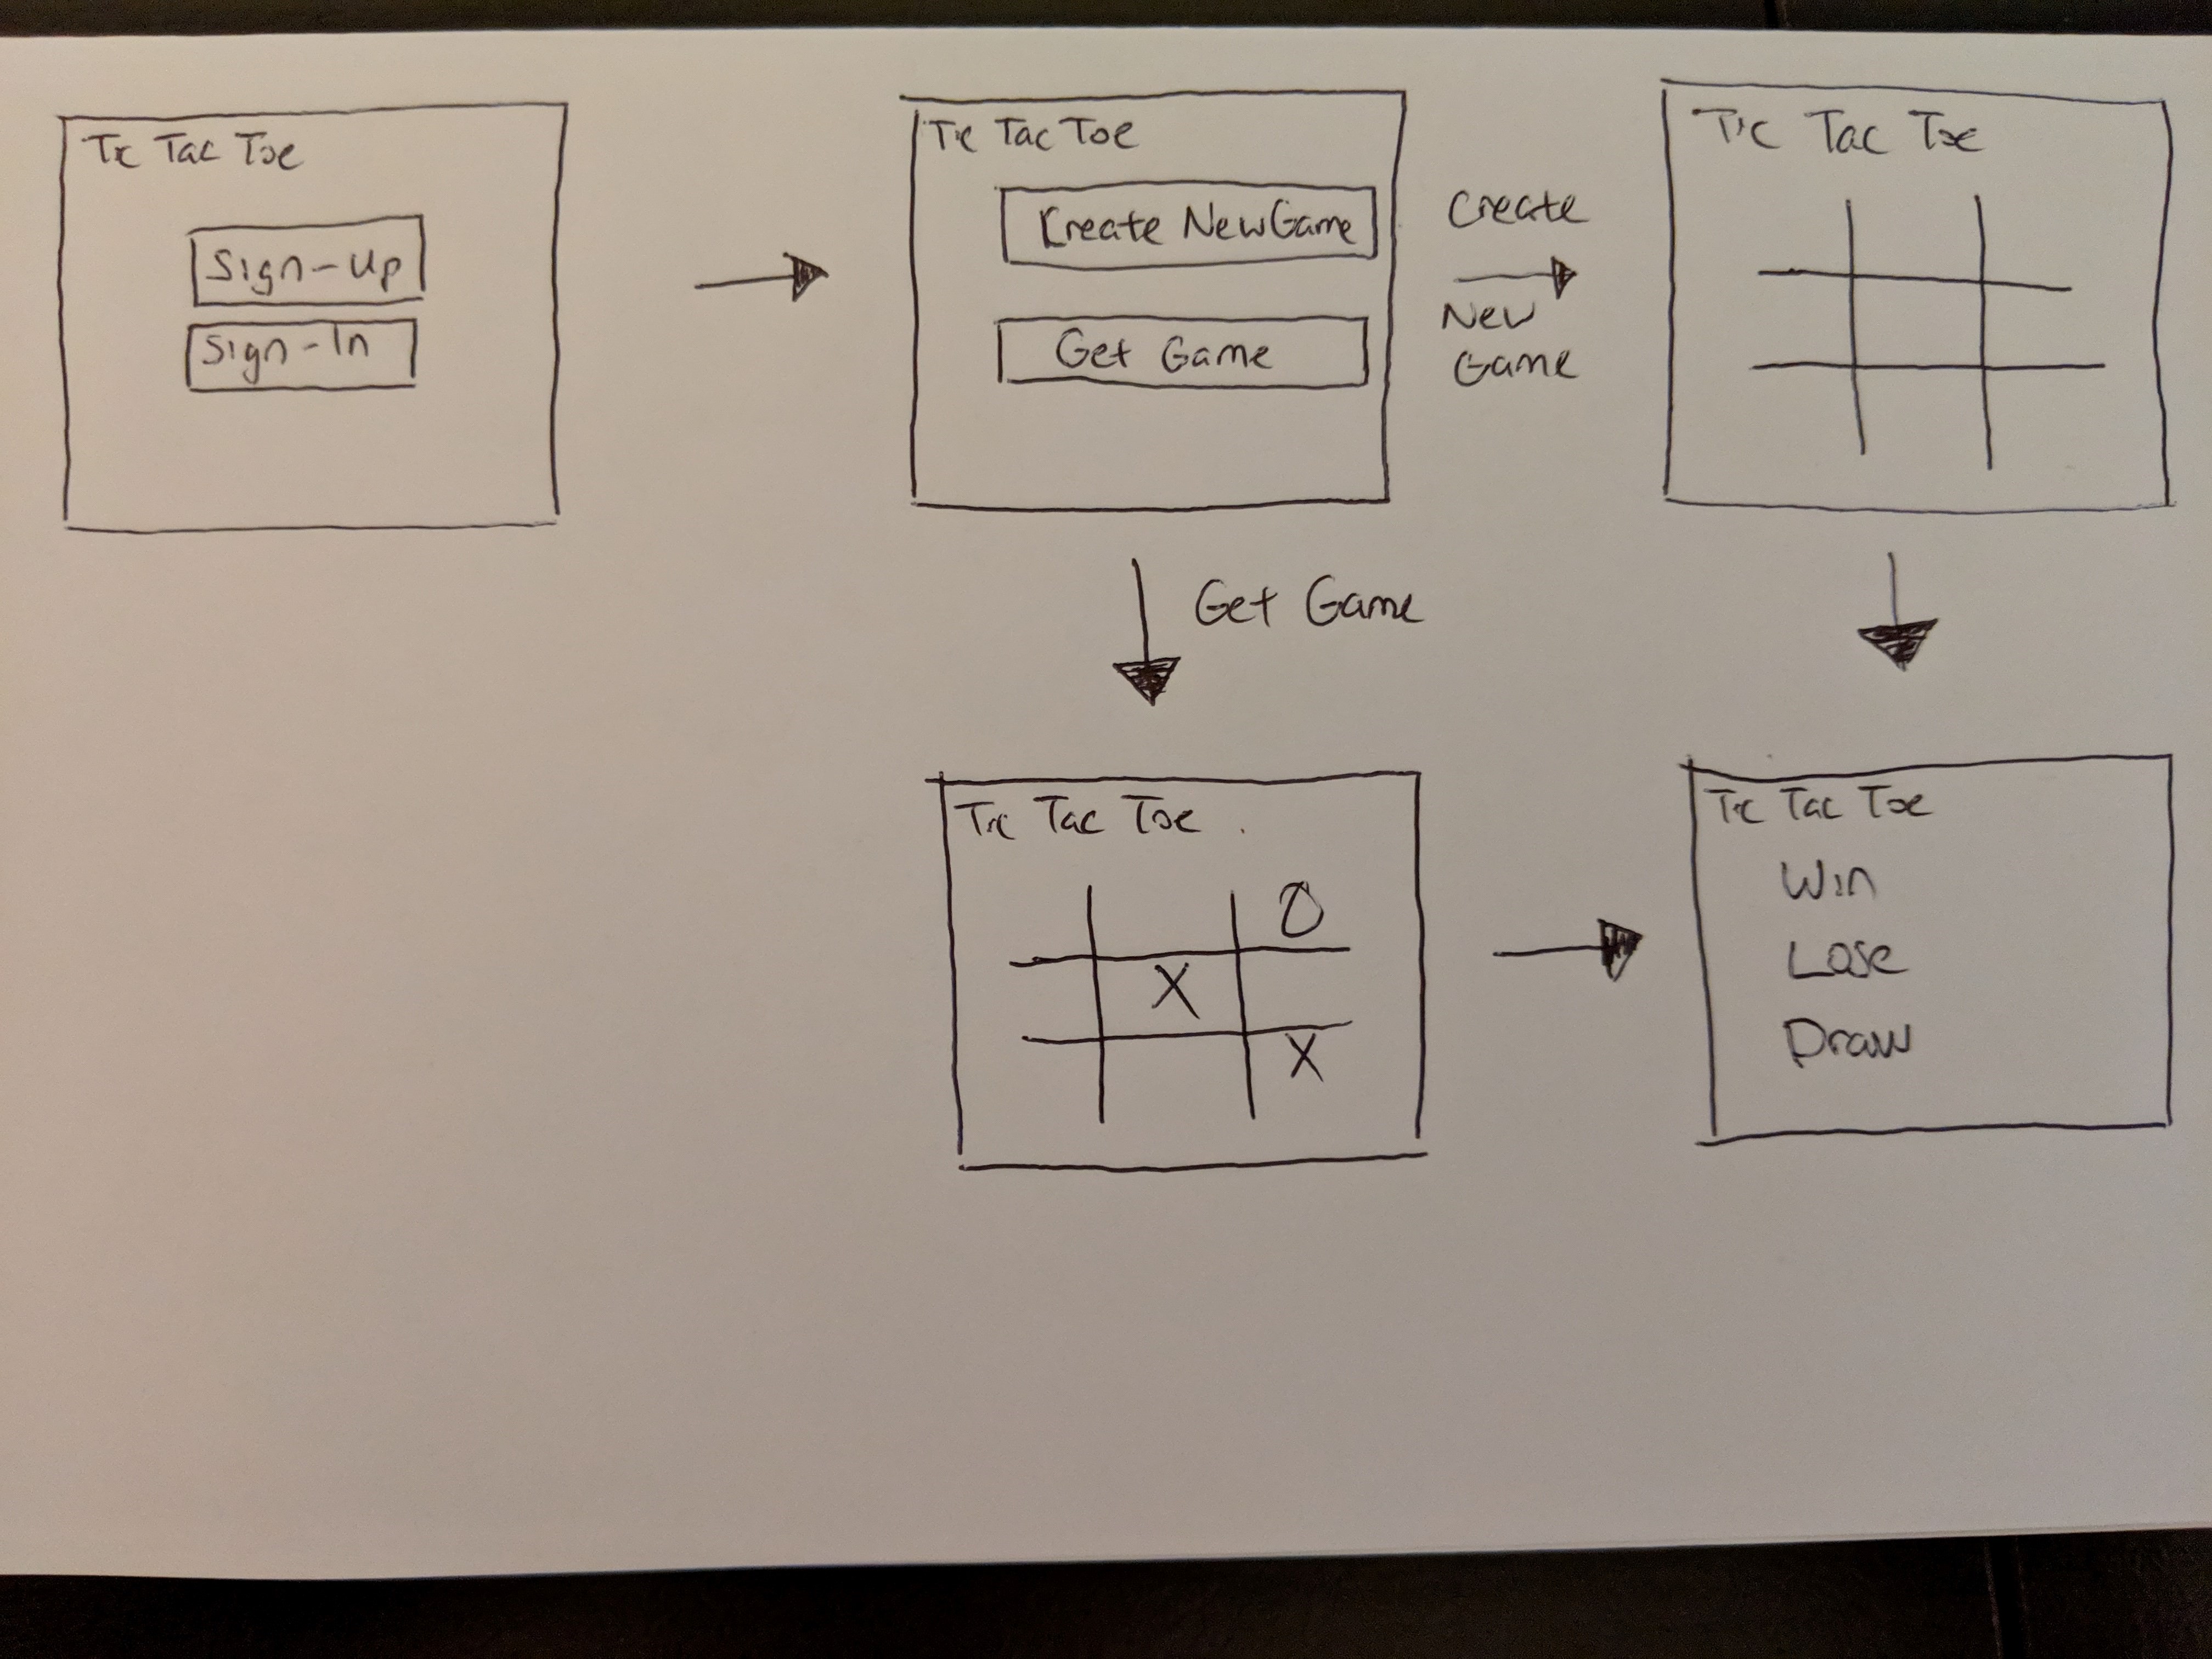 Tic Tac Toe
Sign-Up
Sign-In
Tic Tac Toe
Create New Game
Get Game
Create
New
Game
Tic Tac Toe
Get Game
Tic Tac Toe
O
X
X
Tic Tac Toe
Win
Lose
Draw